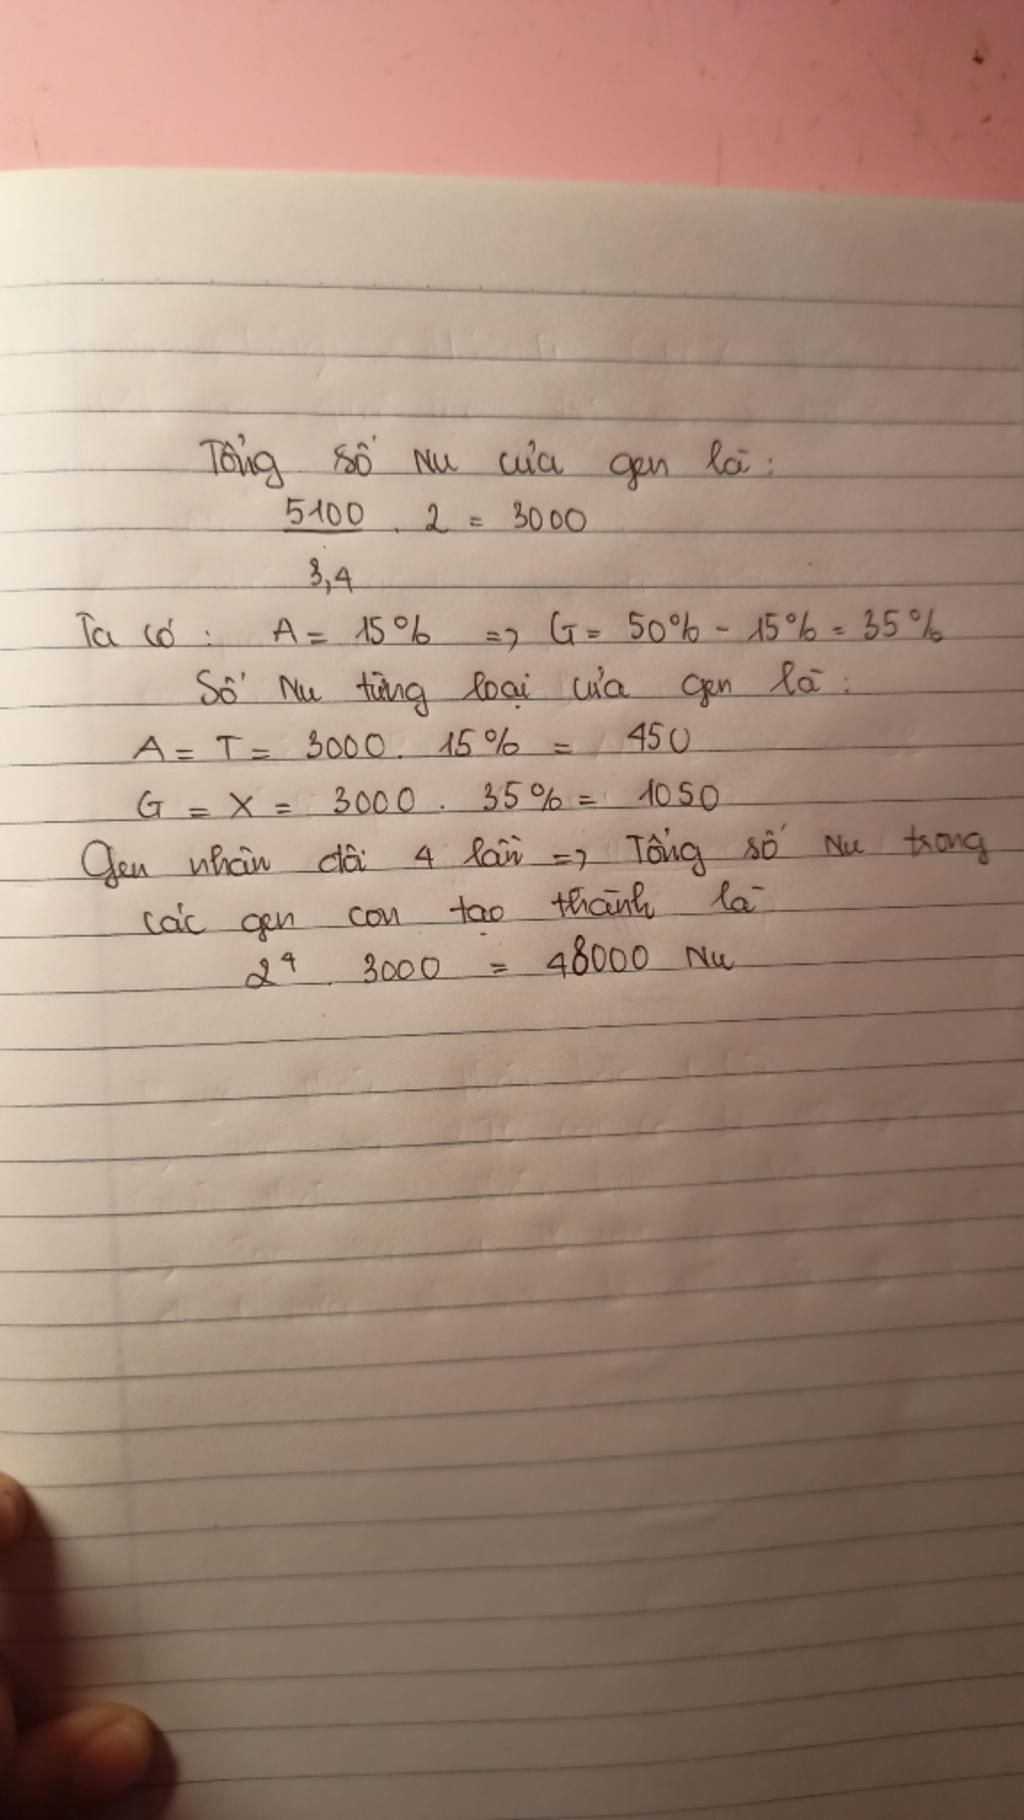 Tổng số Nu của gen là :
5100 . 2 = 3000
3,4
Ta có : A = 15% => G = 50% - 15% = 35%
Số Nu từng loại của gen là :
A = T = 3000 . 15% = 450
G = X = 3000 . 35% = 1050
Gen nhân đôi 4 lần => Tổng số Nu trong
các gen con tạo thành là
2⁴ . 3000 = 48000 Nu